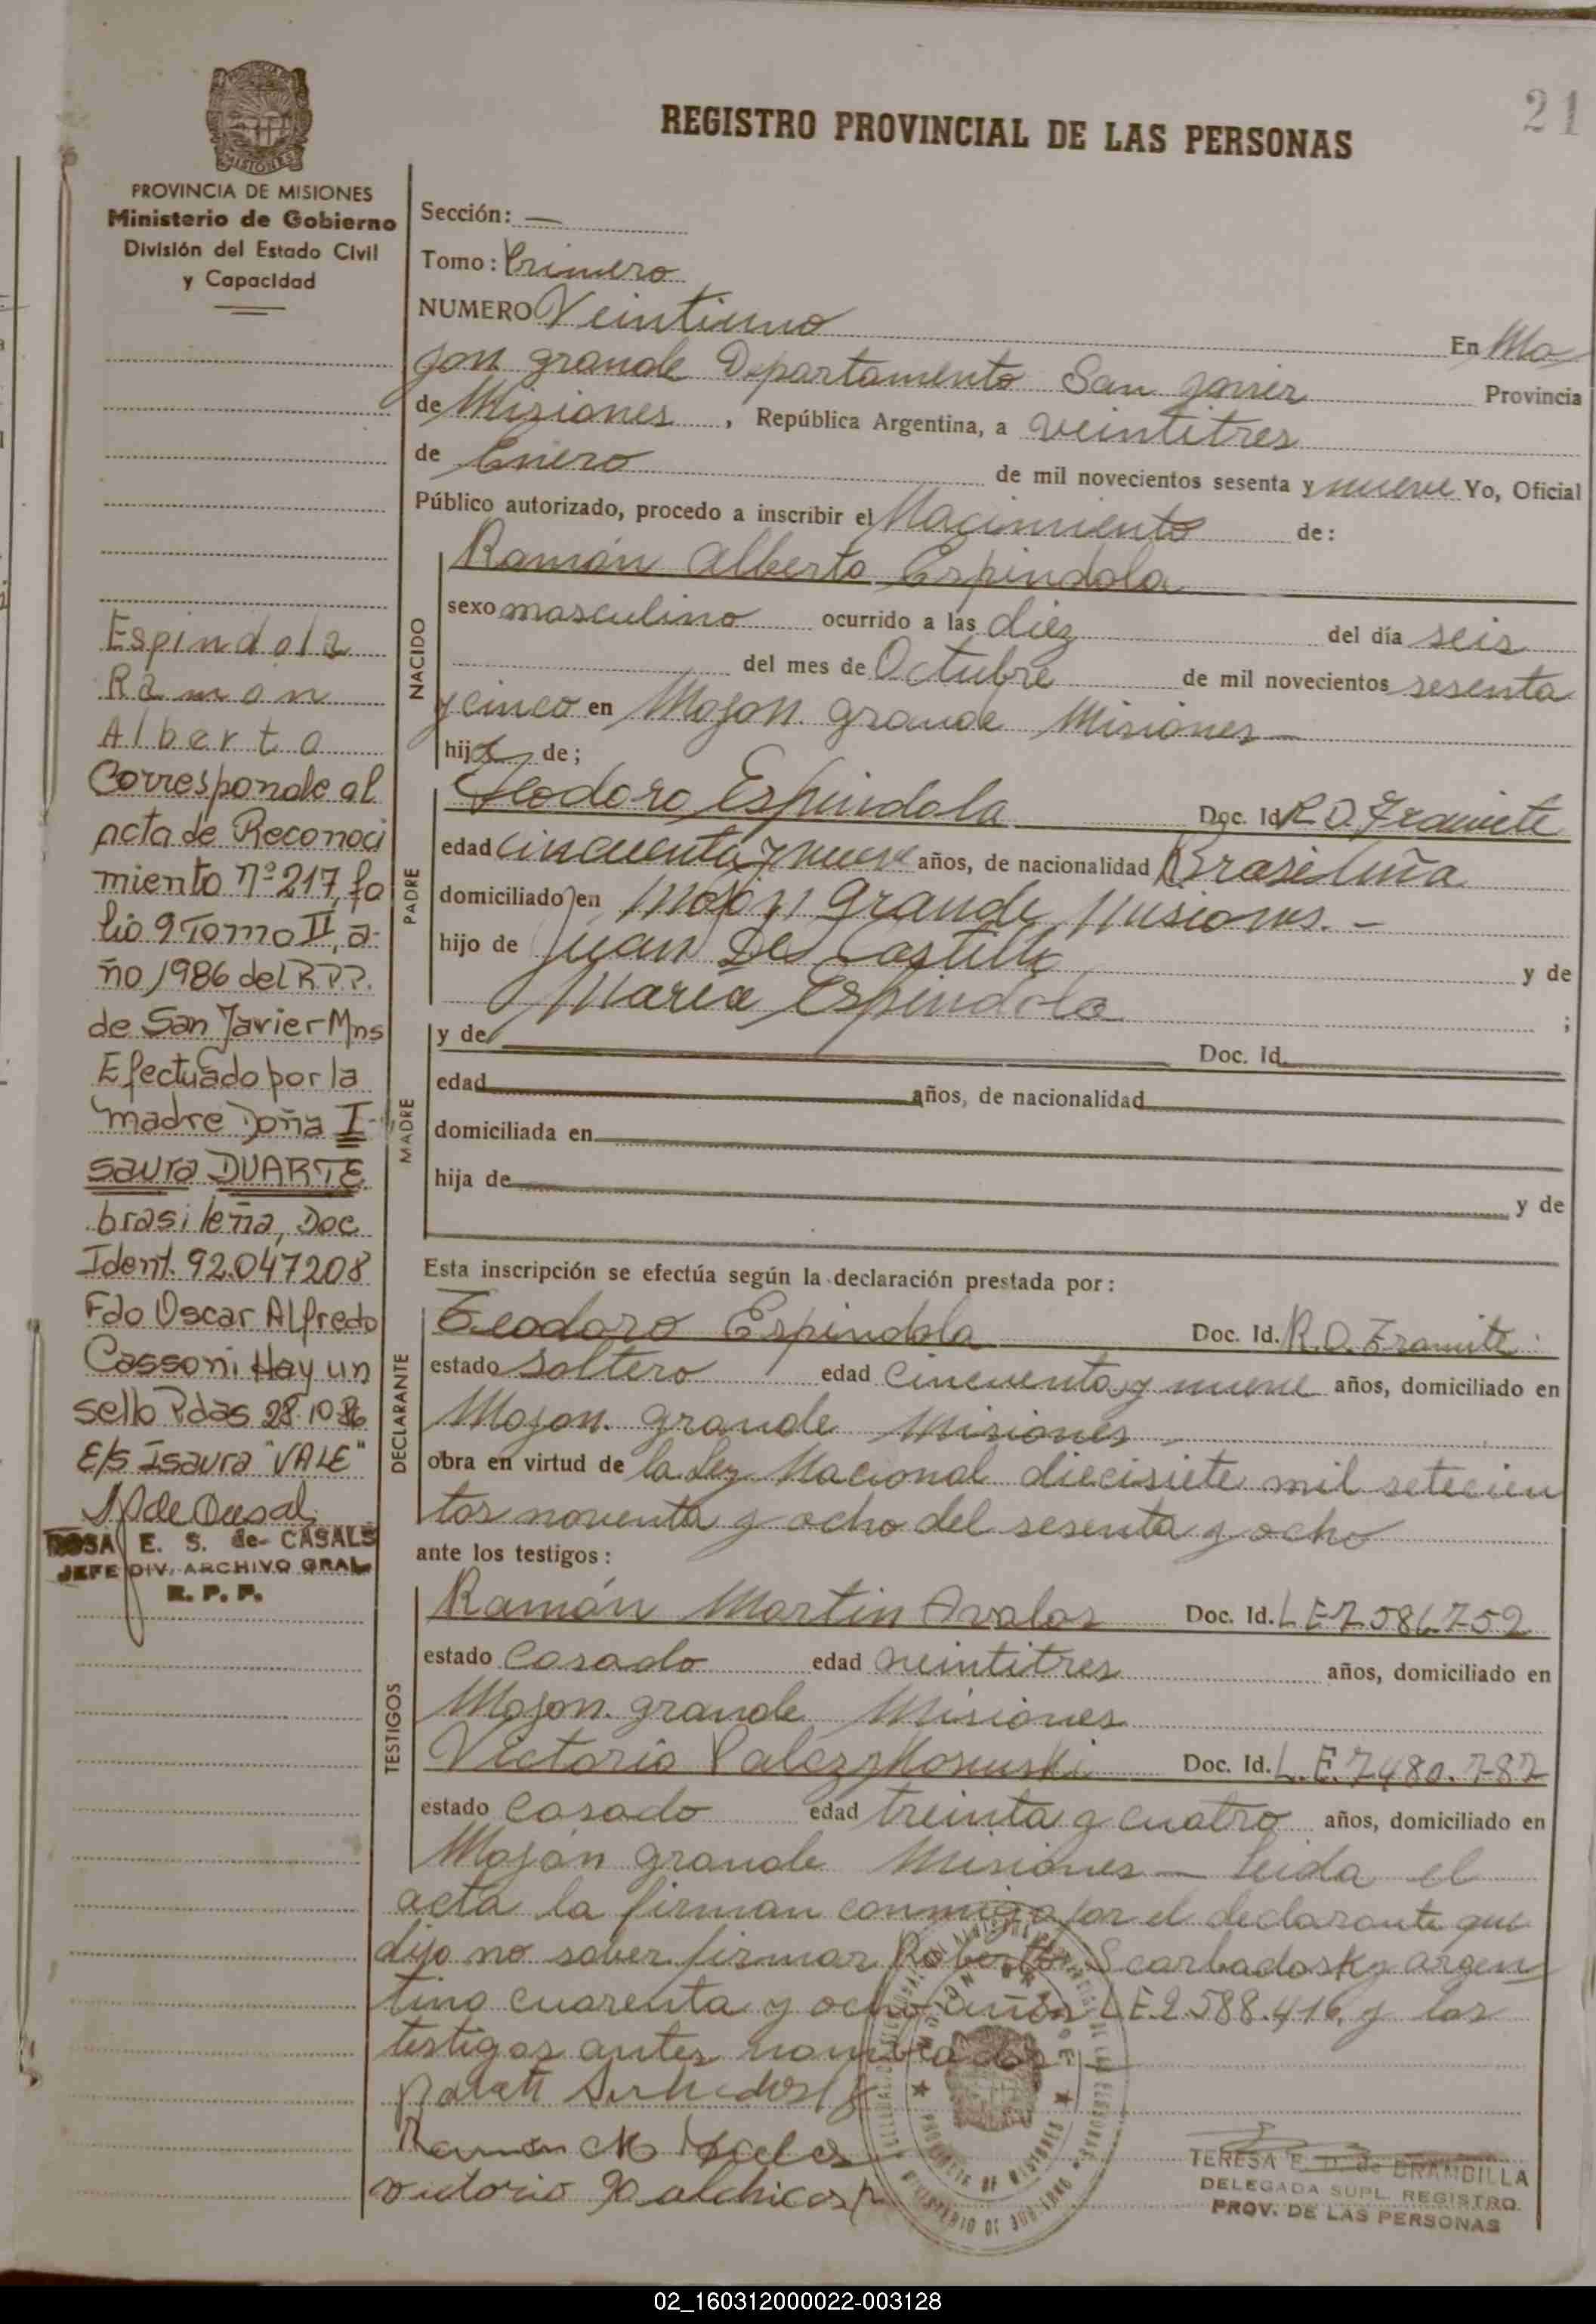 21
REGISTRO PROVINCIAL DE LAS PERSONAS
PROVINCIA DE MISIONES
Ministerio de Gobierno
División del Estado Civil
y Capacidad
Espindola
Ramon
Alberto
Corresponde al
acta de Reconoci
miento nº 217, fo
lio 9 Tomo II, a-
ño 1986 del R.P.P.
de San Javier Mns
Efectuado por la
madre Doña I-
saura DUARTE
brasileña, Doc
Ident. 92.047208
Fdo Oscar Alfredo
Cassoni Hay un
sello Pdas 28.10.86
E/S Isaura "VALE"
ROSA E. S. de CASALS
JEFE DIV. ARCHIVO GRAL
R. P. P.
Sección: —
Tomo: Primero
NUMERO Veintiuno En Mo
jon grande Departamento San Javier Provincia
de Misiones, República Argentina, a veintitres
de Enero de mil novecientos sesenta y nueve Yo, Oficial
Público autorizado, procedo a inscribir el Nacimiento de:
NACIDO
Ramón Alberto Espindola
sexo masculino ocurrido a las diez del día seis
del mes de Octubre de mil novecientos sesenta
y cinco en Mojon grande Misiones —
hijo de;
PADRE
Teodoro Espindola Doc. Id. R.D. Tramite
edad cincuenta y nueve años, de nacionalidad Brasileña
domiciliado en Mojón grande Misiones. -
hijo de Juan De Castillo y de
Maria Espindola ;
MADRE
y de Doc. Id.
edad años, de nacionalidad
domiciliada en
hija de y de
Esta inscripción se efectúa según la declaración prestada por:
DECLARANTE
Teodoro Espindola Doc. Id. R.D. Tramite
estado soltero edad cincuenta y nueve años, domiciliado en
Mojon grande Misiones
obra en virtud de la Ley Nacional diecisiete mil setecien
tos noventa y ocho del sesenta y ocho
ante los testigos:
TESTIGOS
Ramón Martin Avalos Doc. Id. L E 7.586.752
estado casado edad veintitres años, domiciliado en
Mojon grande Misiones
Victorio Doc. Id. L.E. 7.480.787
estado casado edad treinta y cuatro años, domiciliado en
Mojón grande Misiones — Leida el
acta la firman conmigo por el declarante que
dijo no saber firmar Roberto Scarbadosky argen
tino cuarenta y ocho años L E 2.588.416, y los
testigos antes nombrados
Ramon M
victorio
TERESA E. D. de BRAMBILLA
DELEGADA SUPL. REGISTRO
PROV. DE LAS PERSONAS
02_160312000022-003128